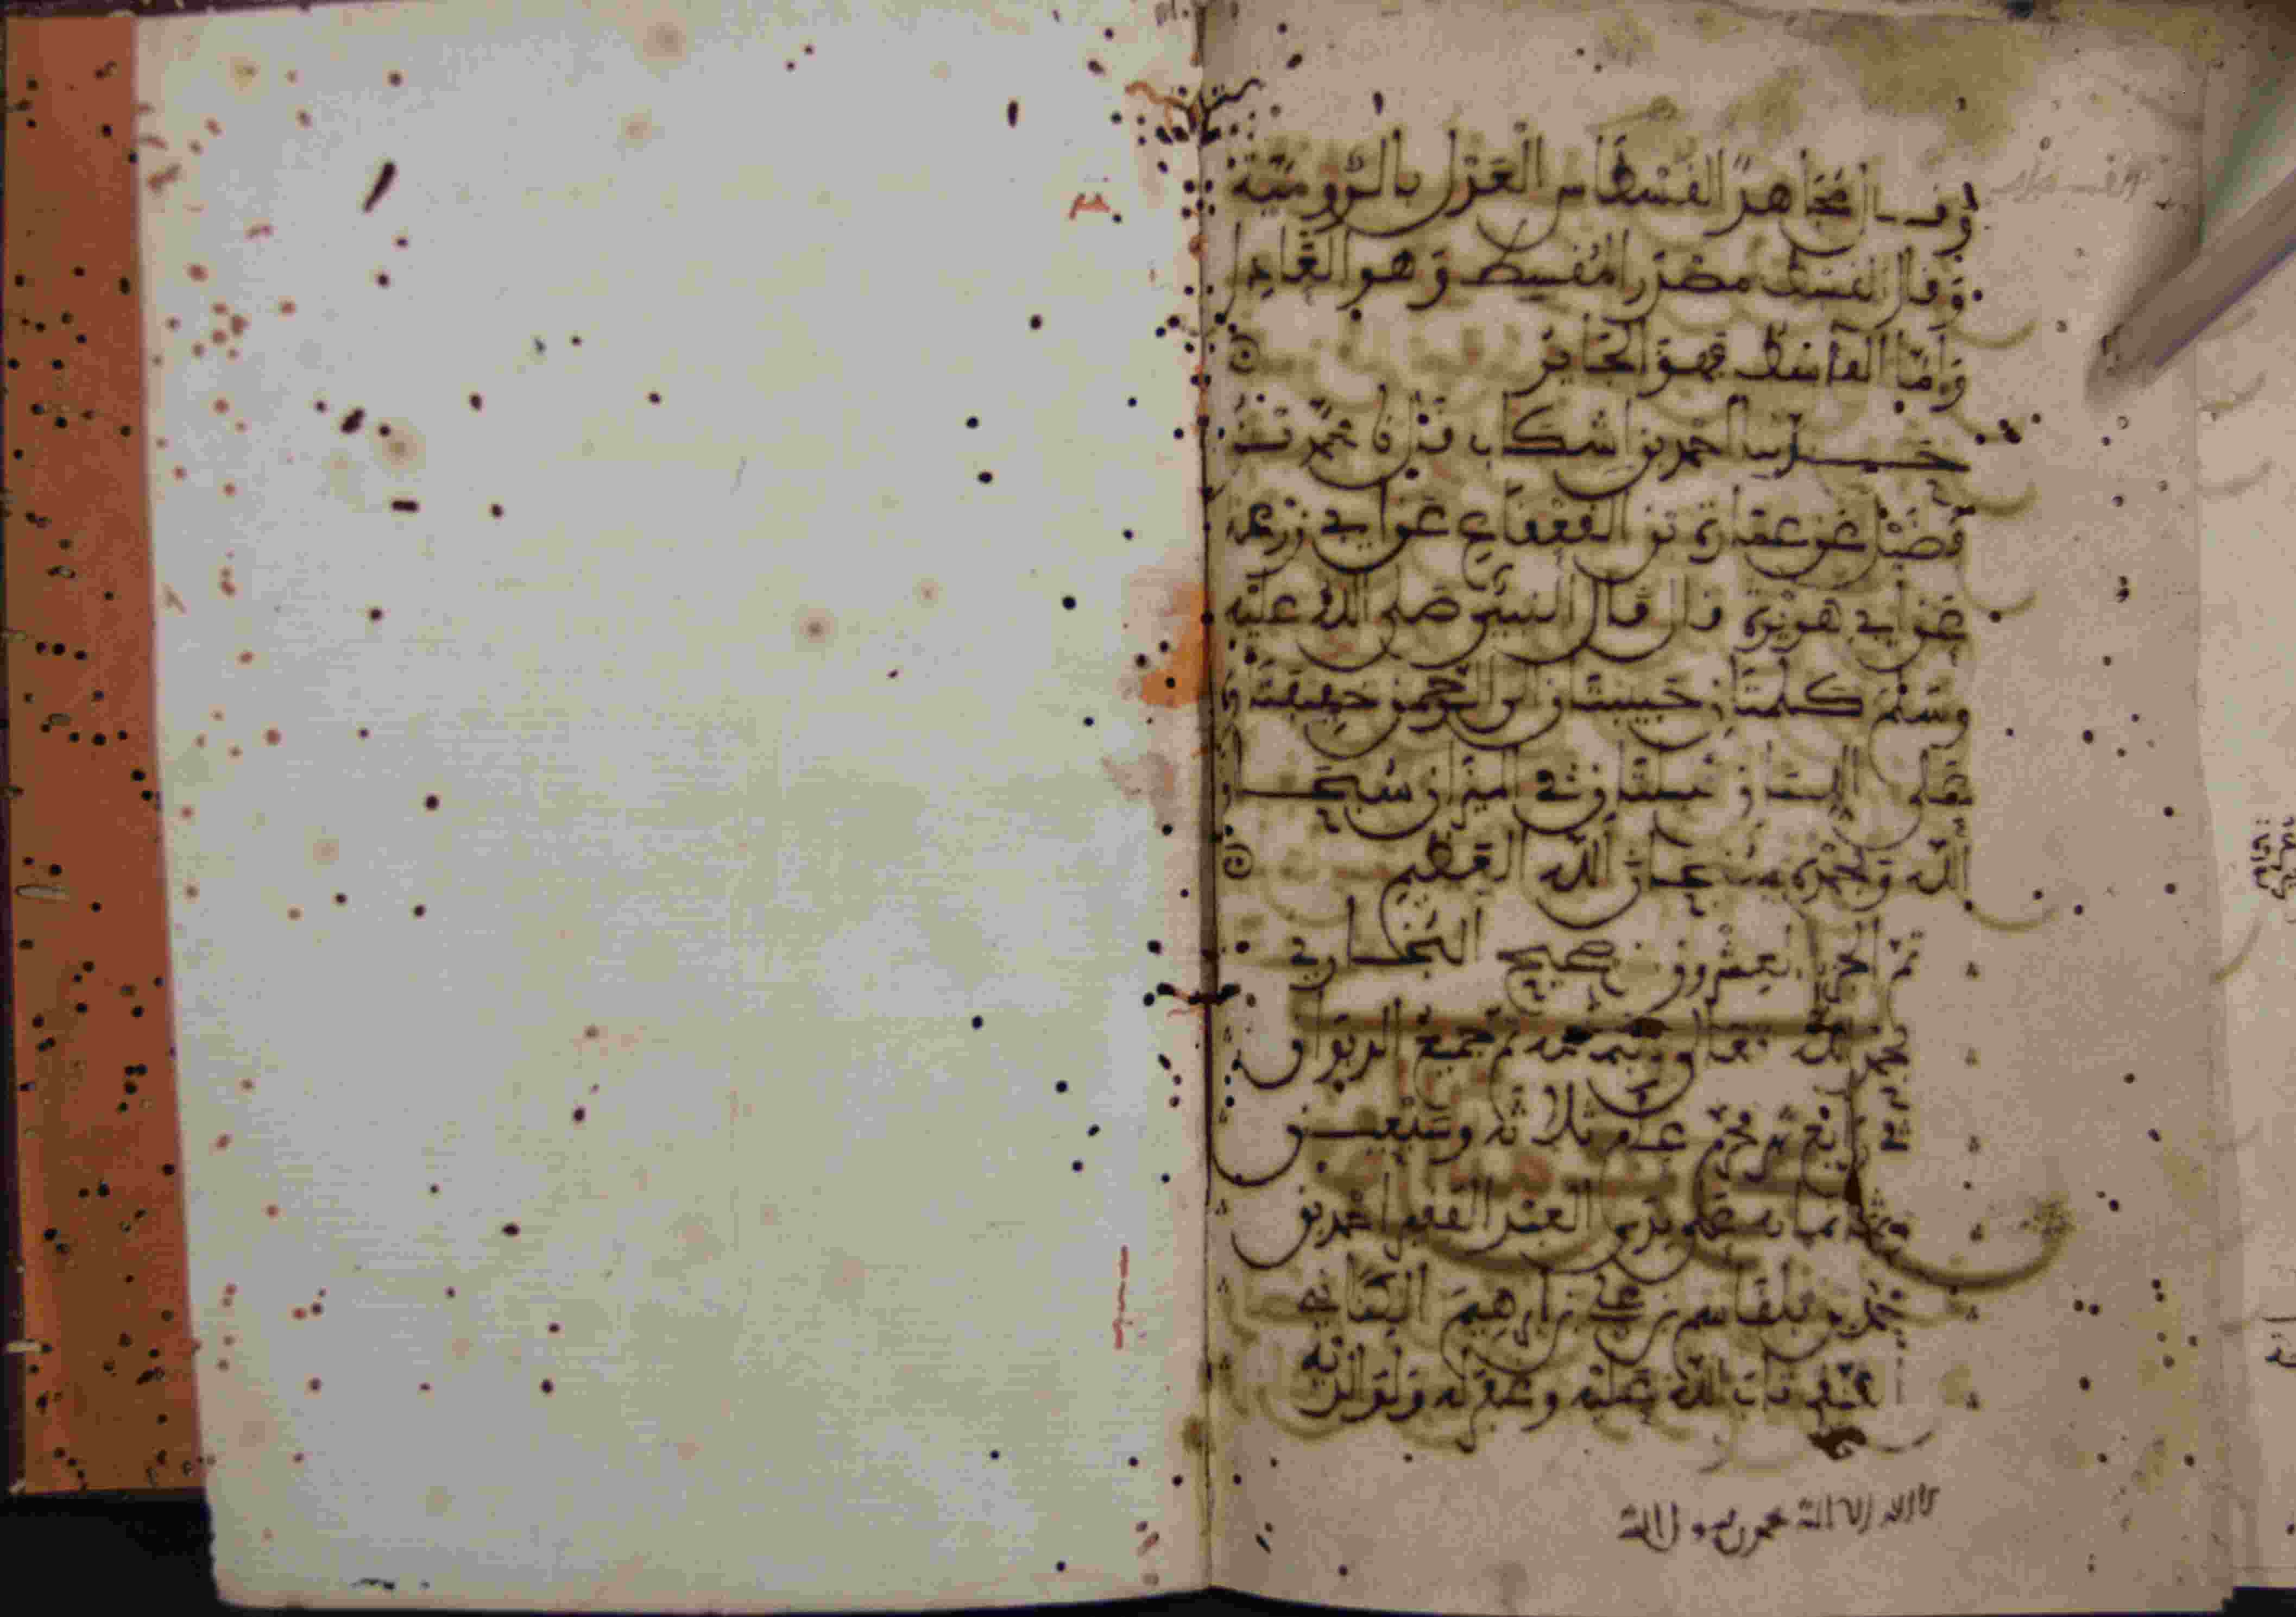 وقال مجاهد القسطاس العدل بالرومية
وقال القسط مصدر المقسط وهو العادل
وأما القاسط فهو الجائر
حدثنا أحمد بن إشكاب قال نا محمد بن
فضيل عن عمارة بن القعقاع عن أبي زرعة
عن أبي هريرة قال قال النبي صلى الله عليه
وسلم كلمتان حبيبتان إلى الرحمن خفيفتان
على اللسان ثقيلتان في الميزان سبحان
الله وبحمده سبحان الله العظيم
تم الجزء العشرون من صحيح البخاري
بحمد الله تعالى وبتمامه تم جميع الديوان
في محرم عام ثلاثة وسبعين
على يدي العبد الفقير أحمد بن
محمد بن بلقاسم بن علي بن إبراهيم
تاب الله عليه وغفر له ولوالديه
لا إله إلا الله محمد رسول الله